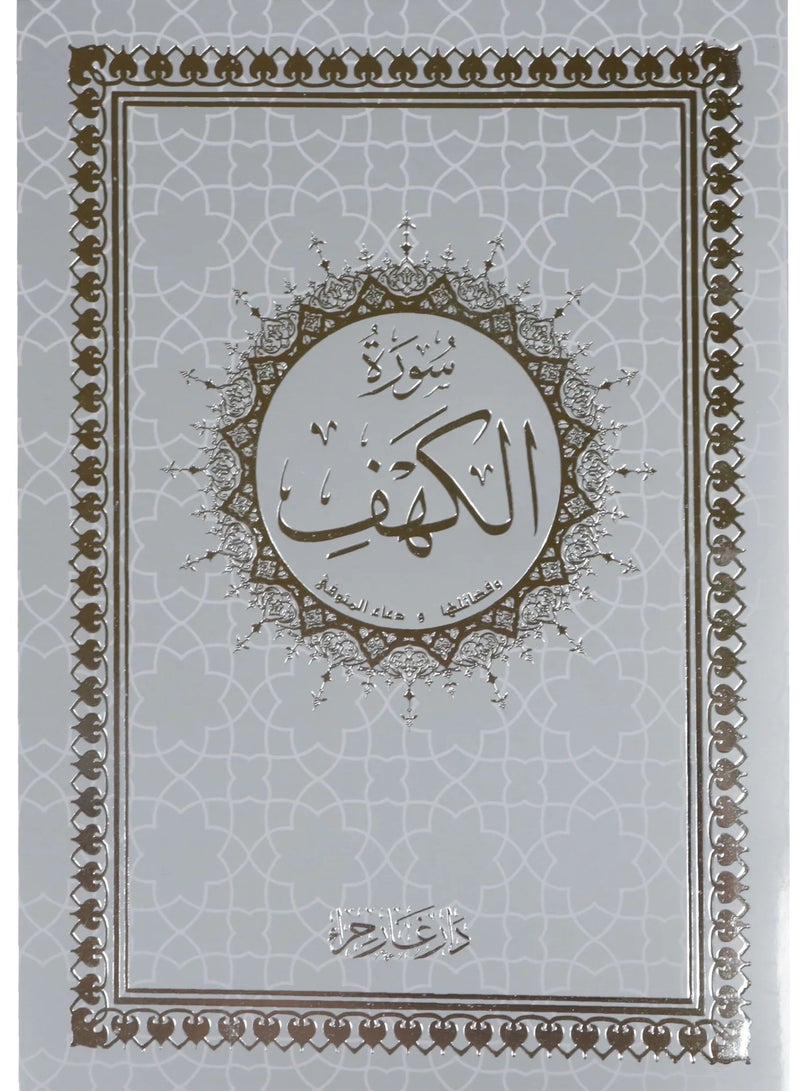 سُورَةُ
الكَهْفِ
وفضائلها و دعاء المتوفى
دَار غَار حِرَاء